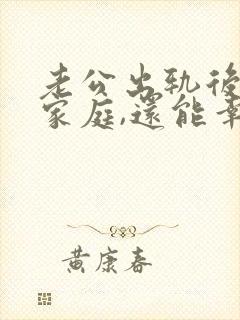 老公出軌後
家庭,還能幸
黃康春